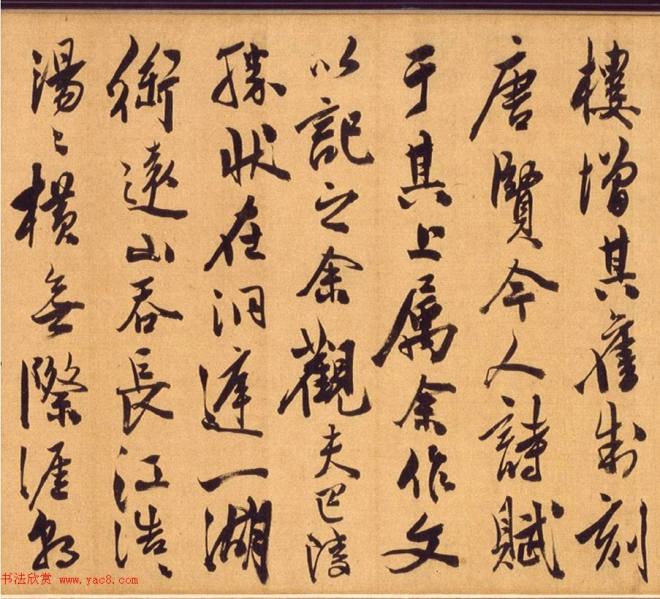 樓增其舊制刻
唐賢今人詩賦
于其上属余作文
以記之余觀夫巴陵
勝狀在洞庭一湖
銜遠山吞長江浩〻
湯〻橫無際涯朝
书法欣赏 www.yac8.com